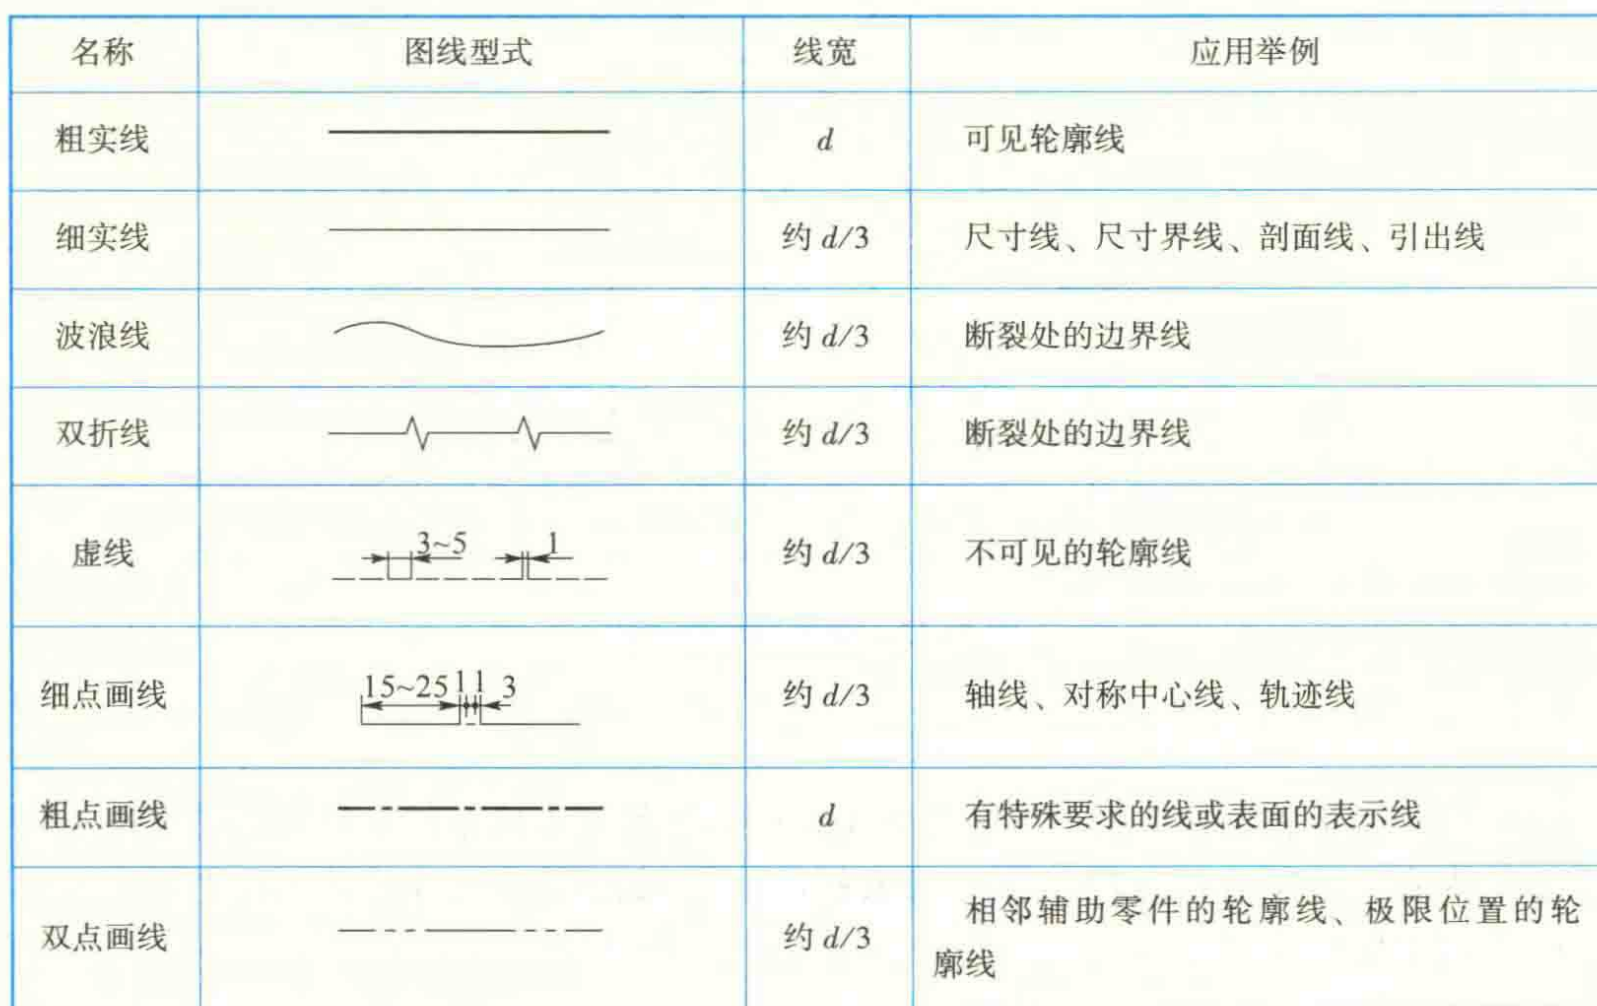 名称 图线型式 线宽 应用举例
粗实线 d 可见轮廓线
细实线 约 d/3 尺寸线、尺寸界线、剖面线、引出线
波浪线 约 d/3 断裂处的边界线
双折线 约 d/3 断裂处的边界线
虚线 3~5 1 约 d/3 不可见的轮廓线
细点画线 15~25 1 1 3 约 d/3 轴线、对称中心线、轨迹线
粗点画线 d 有特殊要求的线或表面的表示线
双点画线 约 d/3 相邻辅助零件的轮廓线、极限位置的轮
廓线